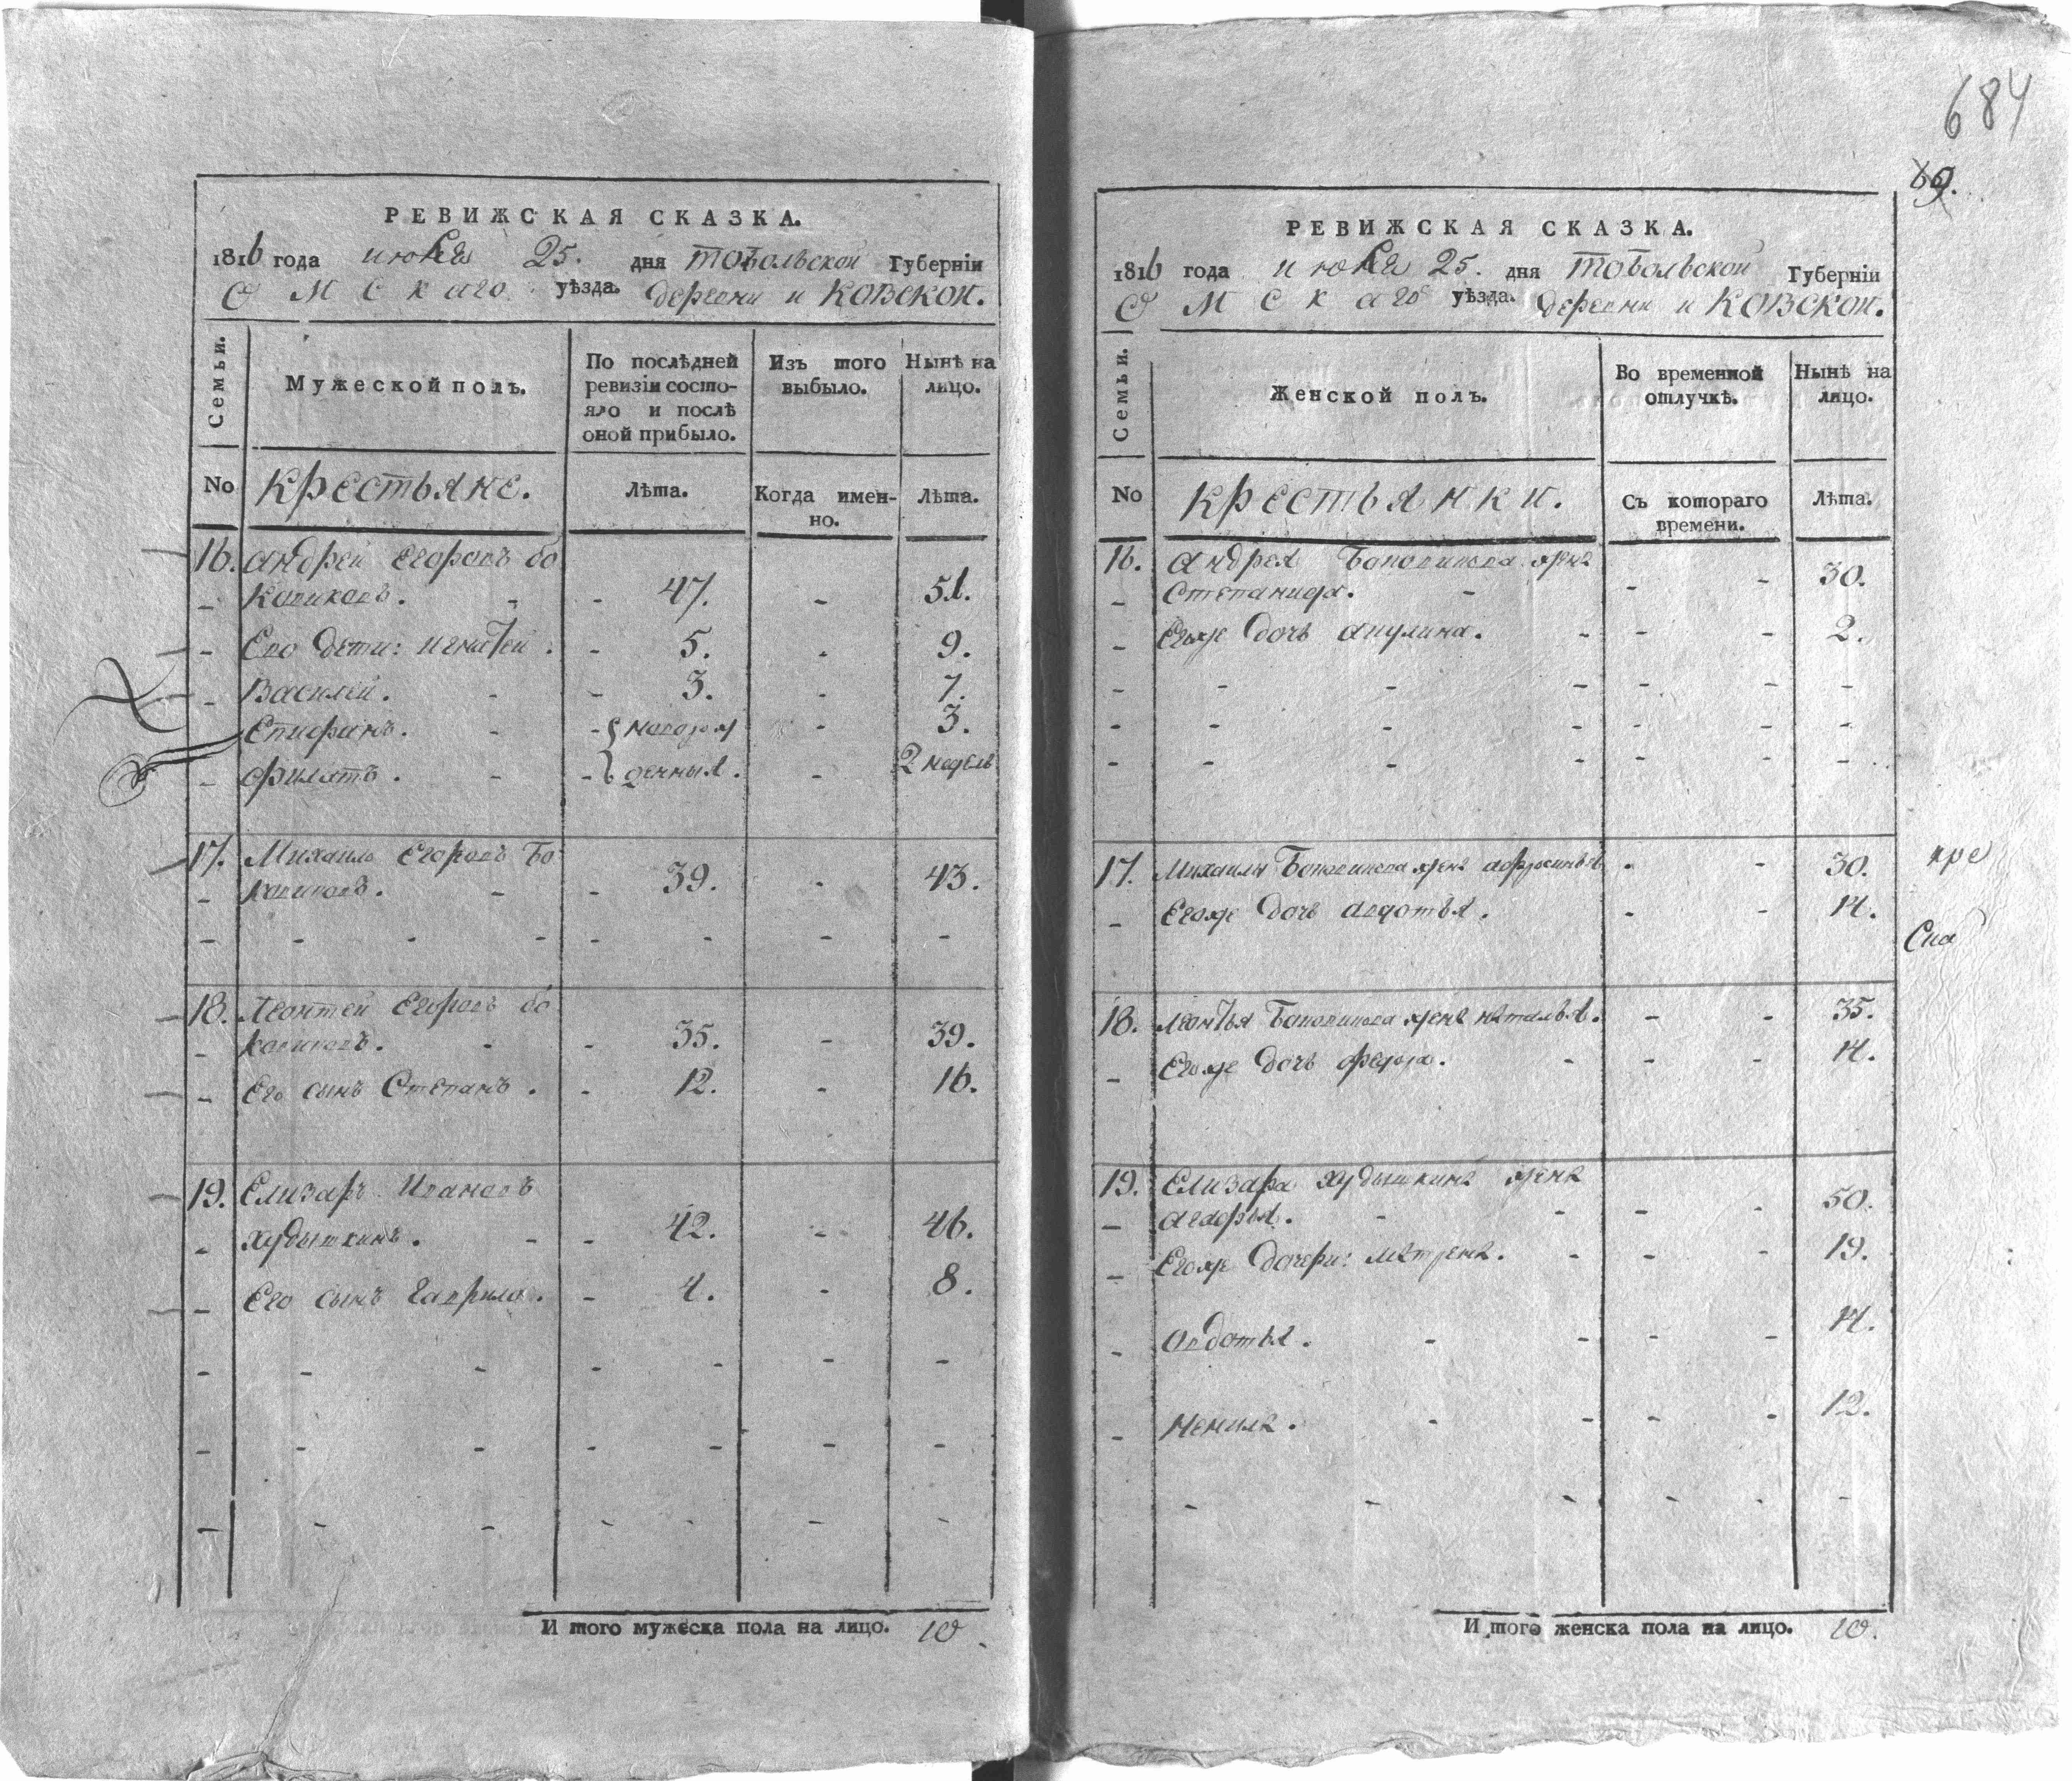 684
69.
РЕВИЖСКАЯ СКАЗКА.
1816 года июня 25. дня Тобольской Губерніи
Омскаго уѣзда. деревни Иковской.
Семьи.
Мужеской полъ.
По послѣдней ревизіи состо-
яло и послѣ оной прибыло.
Изъ того выбыло.
Нынѣ на лицо.
No Крестьяне. Лѣта. Когда имен-но. Лѣта.
16. Андрей Егоровъ Бо
ковиковъ. 47. 51.
Его дети: Игнатей. 5. 9.
Василей. 3. 7.
Епифанъ. новорож 3.
Филатъ. денныя. 2 недель
17. Михаило Егоровъ Бо
ковиковъ. 39. 43.
18. Леонтей Егоровъ Бо
ковиковъ. 35. 39.
Его сынъ Степанъ. 12. 16.
19. Елизаръ Ивановъ
Худышкинъ. 42. 46.
Его сынъ Гаврило. 4. 8.
И того мужеска пола на лицо. 10.
РЕВИЖСКАЯ СКАЗКА.
1816 года июня 25. дня Тобольской Губерніи
Омскаго уѣзда. деревни Иковской.
Семьи.
Женской полъ.
Во временной отлучкѣ.
Нынѣ на лицо.
No Крестьянки. Съ котораго времени. Лѣта.
16. Андрея Боковикова жена
Степанида. 30.
Егоже дочь Акулина. 2.
17. Михаилы Боковикова жена Афросинья 30.
Егоже дочь Авдотья. 14.
18. Леонтья Боковикова жена Наталья. 35.
Егоже дочь Федора. 14.
19. Елизара Худышкина жена
Агафья. 50.
Егоже дочери: Матрена. 19.
Овдотья. 14.
Ненила. 12.
И того женска пола на лицо. 10.